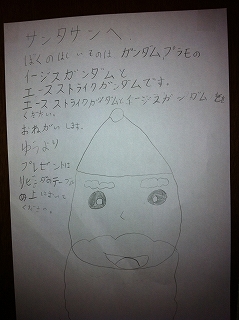 サンタサンへ...
ぼくのほしいものは ガンダムプラモの
イージスガンダムと
エースストライクガンダムです。
エースストライクガンダムとイージスガンダム を
ください。
おねがいします。
ゆうより
プレゼントは
リビングのテーブル
の上において
ください。